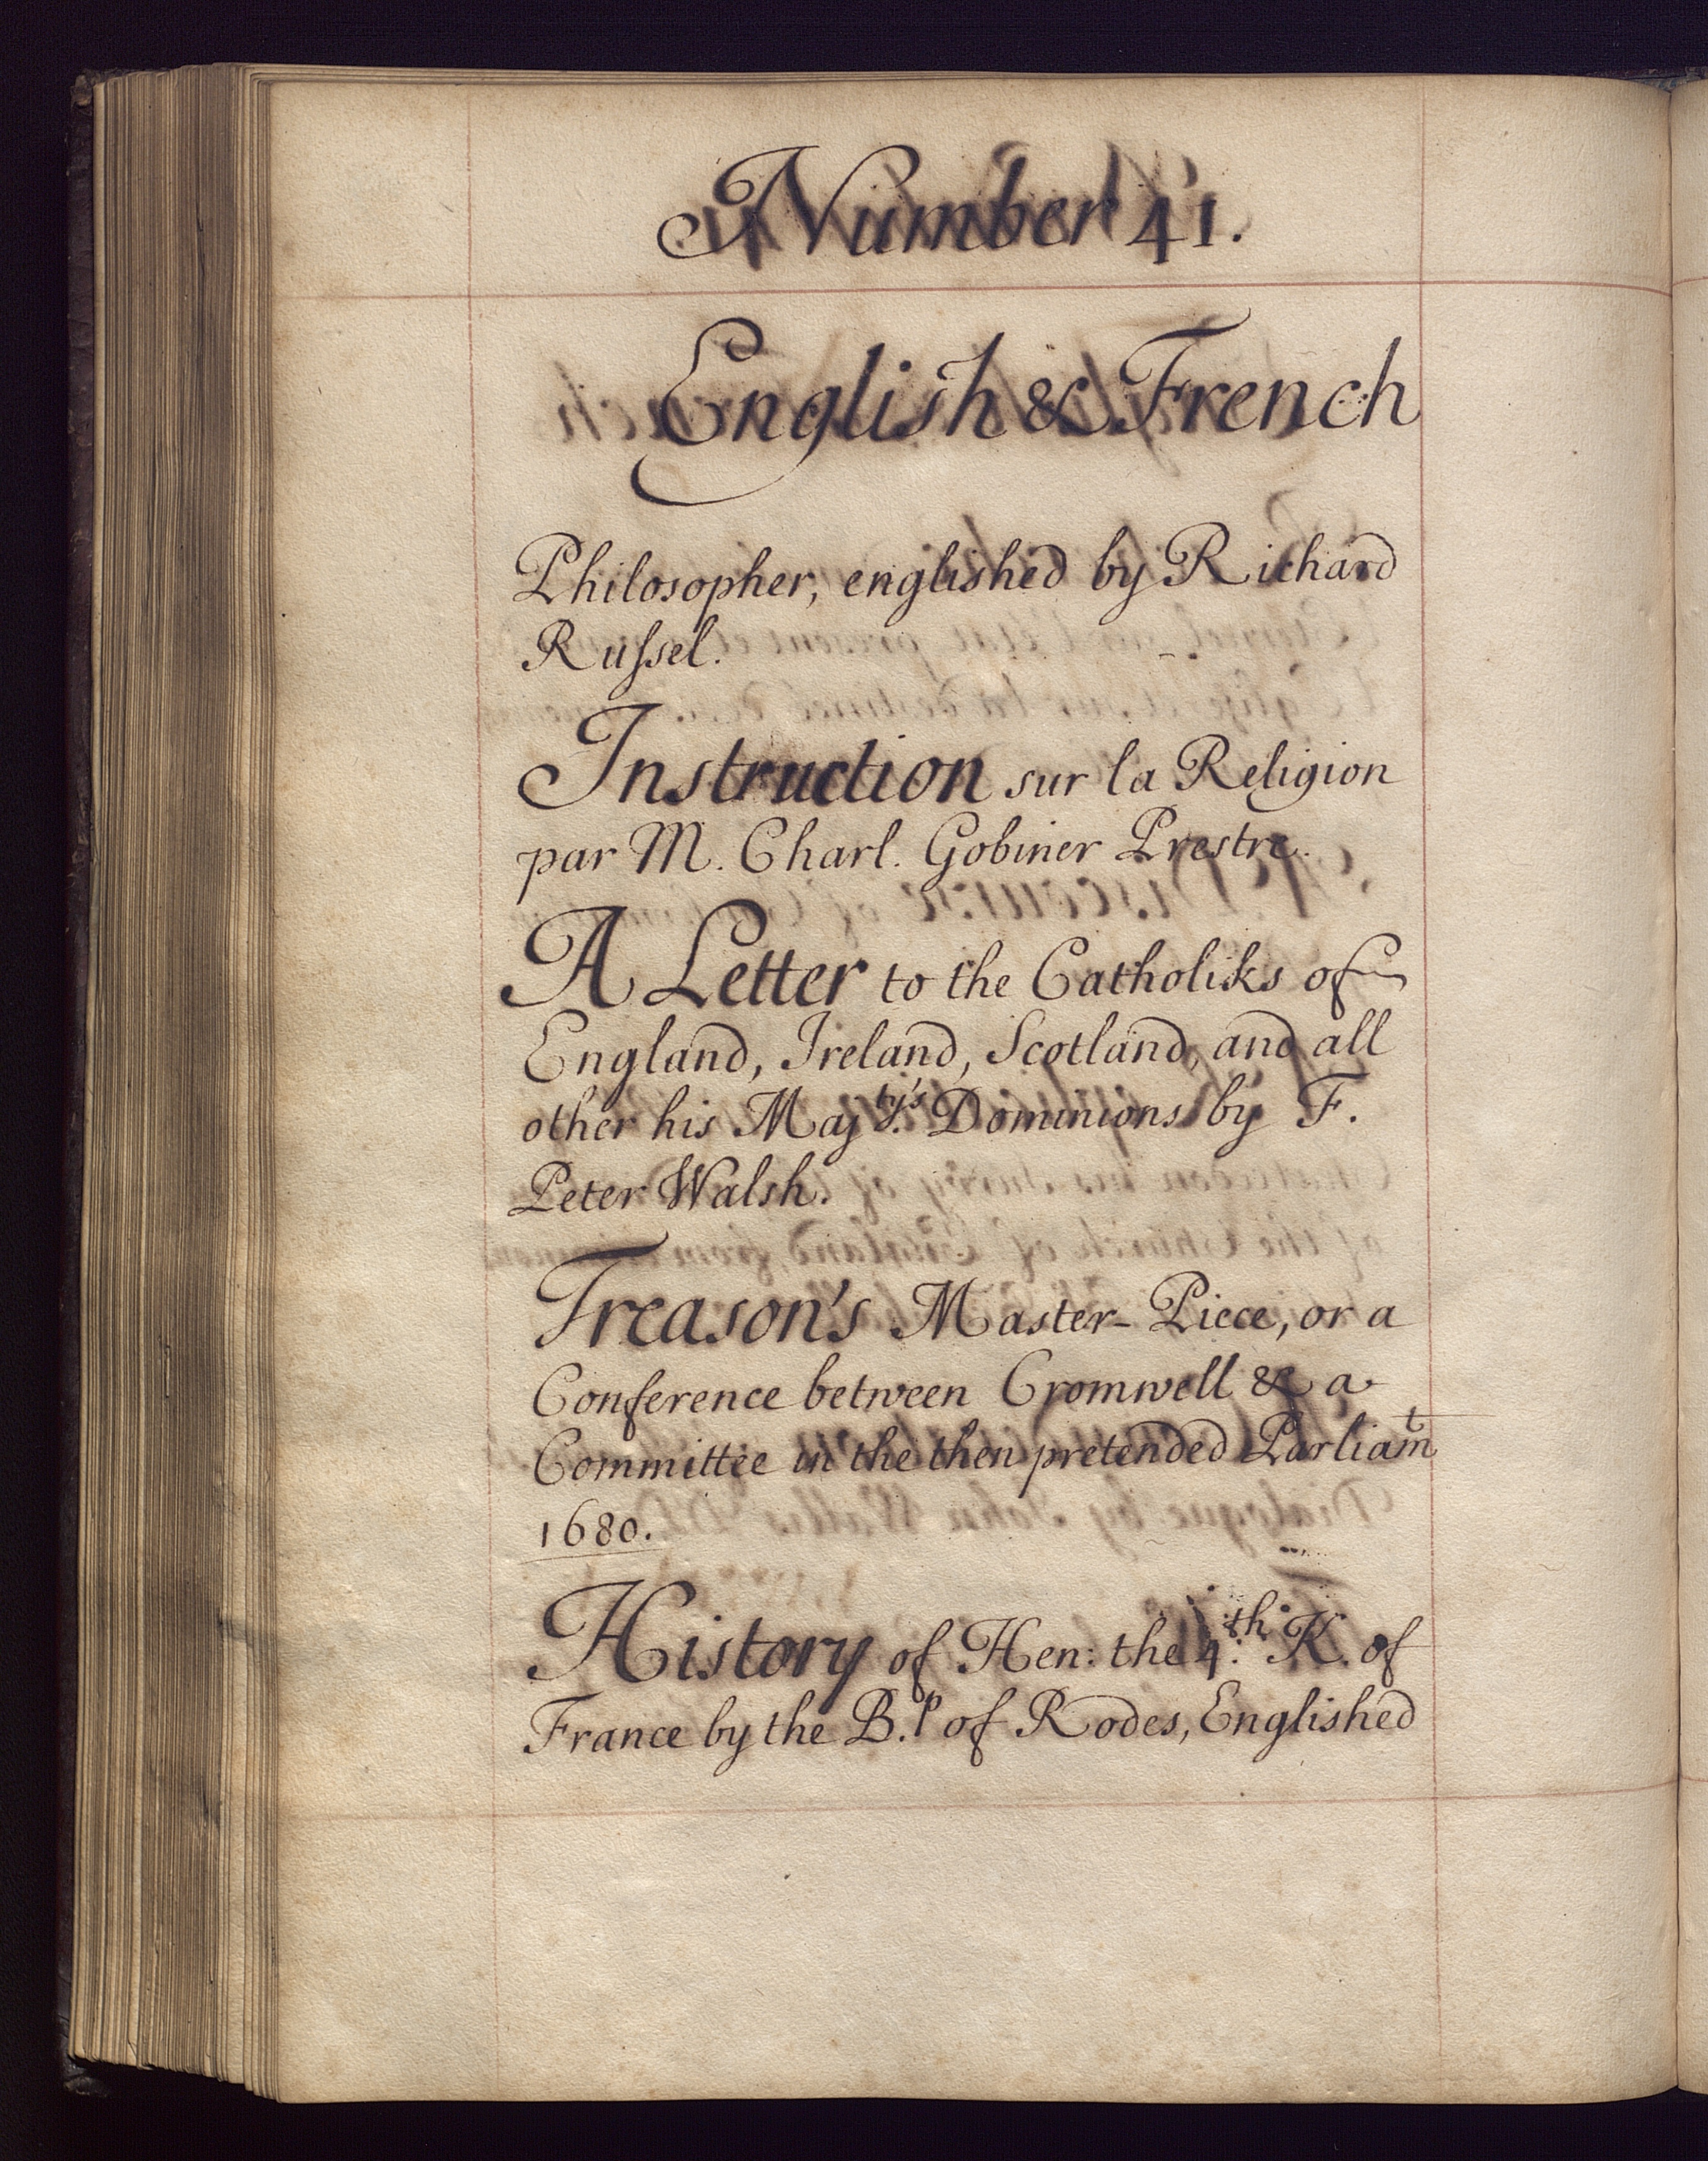 Number 41.
English & French
Philosopher, englished by Richard
Russel.
Instruction sur la Religion
par M. Charl. Gobiner Prestre.
A Letter to the Catholiks of
England, Ireland, Scotland, and all
other his Majty's. Dominions by F.
Peter Walsh.
Treason's Master-Piece, or a
Conference between Cromwell & a
Committee in the then pretended Parliamt
1680.
History of Hen: the 4th. K. of
France by the B.p of Rodes, Englished